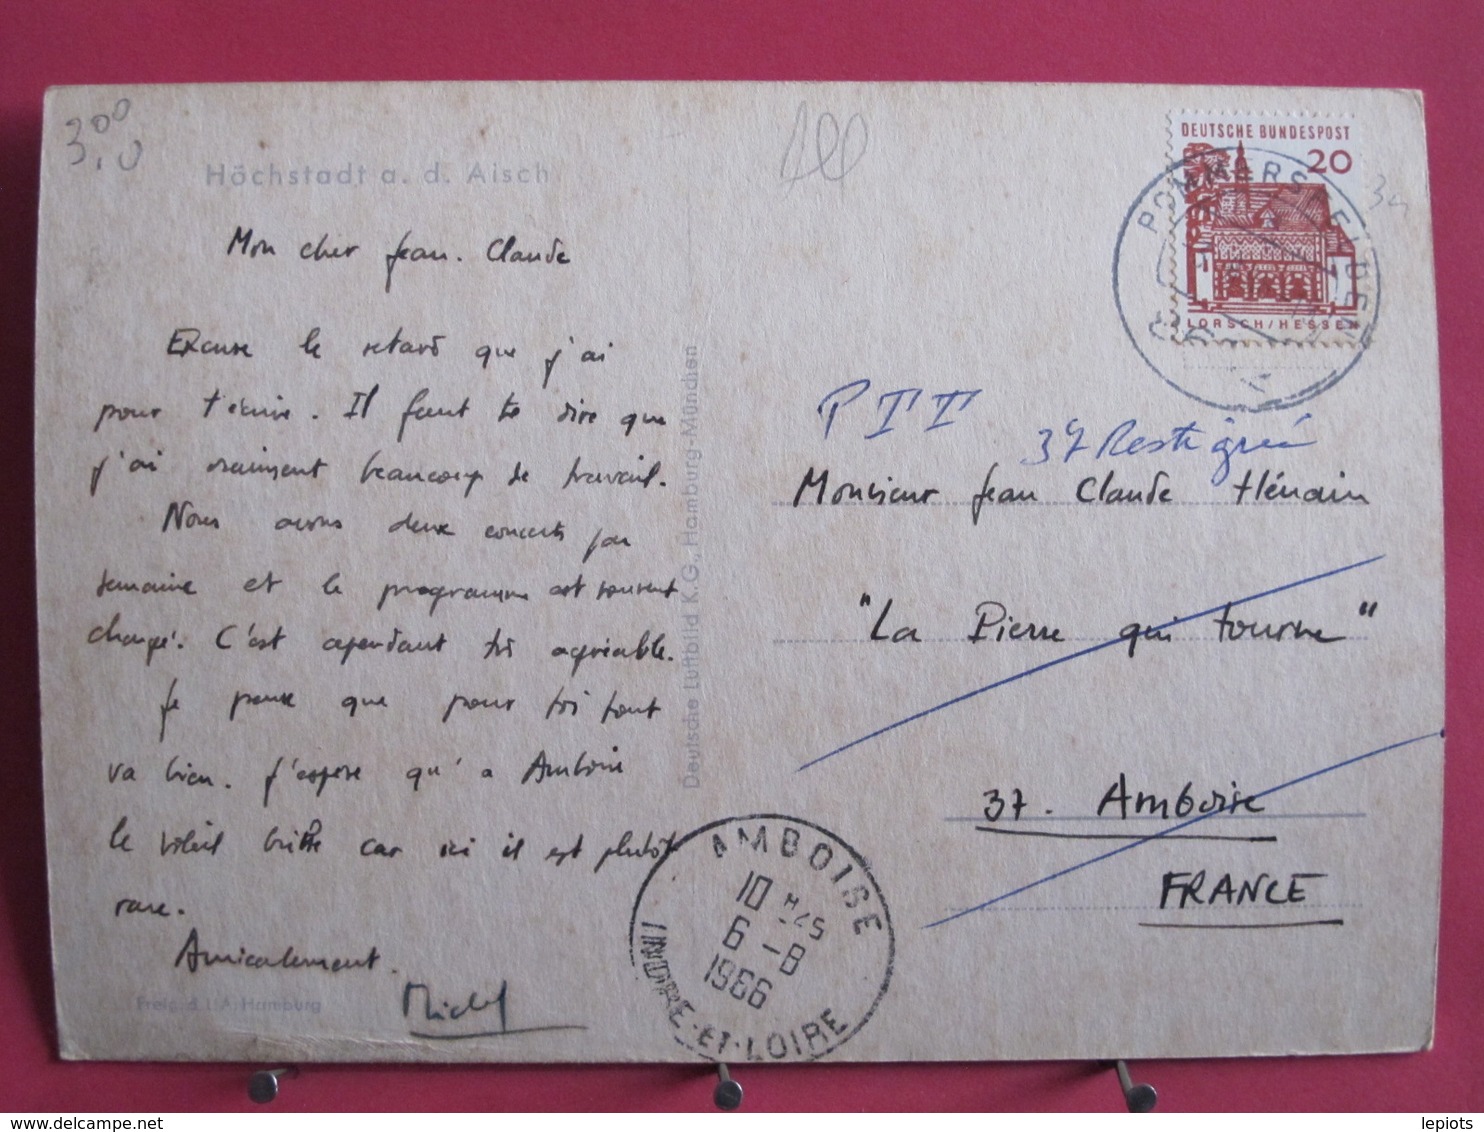 3.00
Höchstadt a. d. Aisch
Mon cher Jean. Claude
Excuse le retard que j'ai
pour t'écrire. Il faut te dire que
j'ai vraiment beaucoup de travail.
Nous avons deux concerts par
semaine et le programme est souvent
changé. C'est cependant très agréable.
Je pense que pour toi tout
va bien. J'espère qu'a Amboise
le soleil brille car ici il est plutôt
rare.
Amicalement.
Michel
Freig. d. L. A. Hamburg
Deutsche Luftbild K.G., Hamburg-München
DEUTSCHE BUNDESPOST
20
LORSCH/HESSEN
POMMERSFELDEN
PTT
37 Restigné
Monsieur Jean Claude Hénain
"La Pierre qui tourne"
37. Amboise
FRANCE
AMBOISE
10 H 45
6-8
1966
INDRE-ET-LOIRE
lepiots